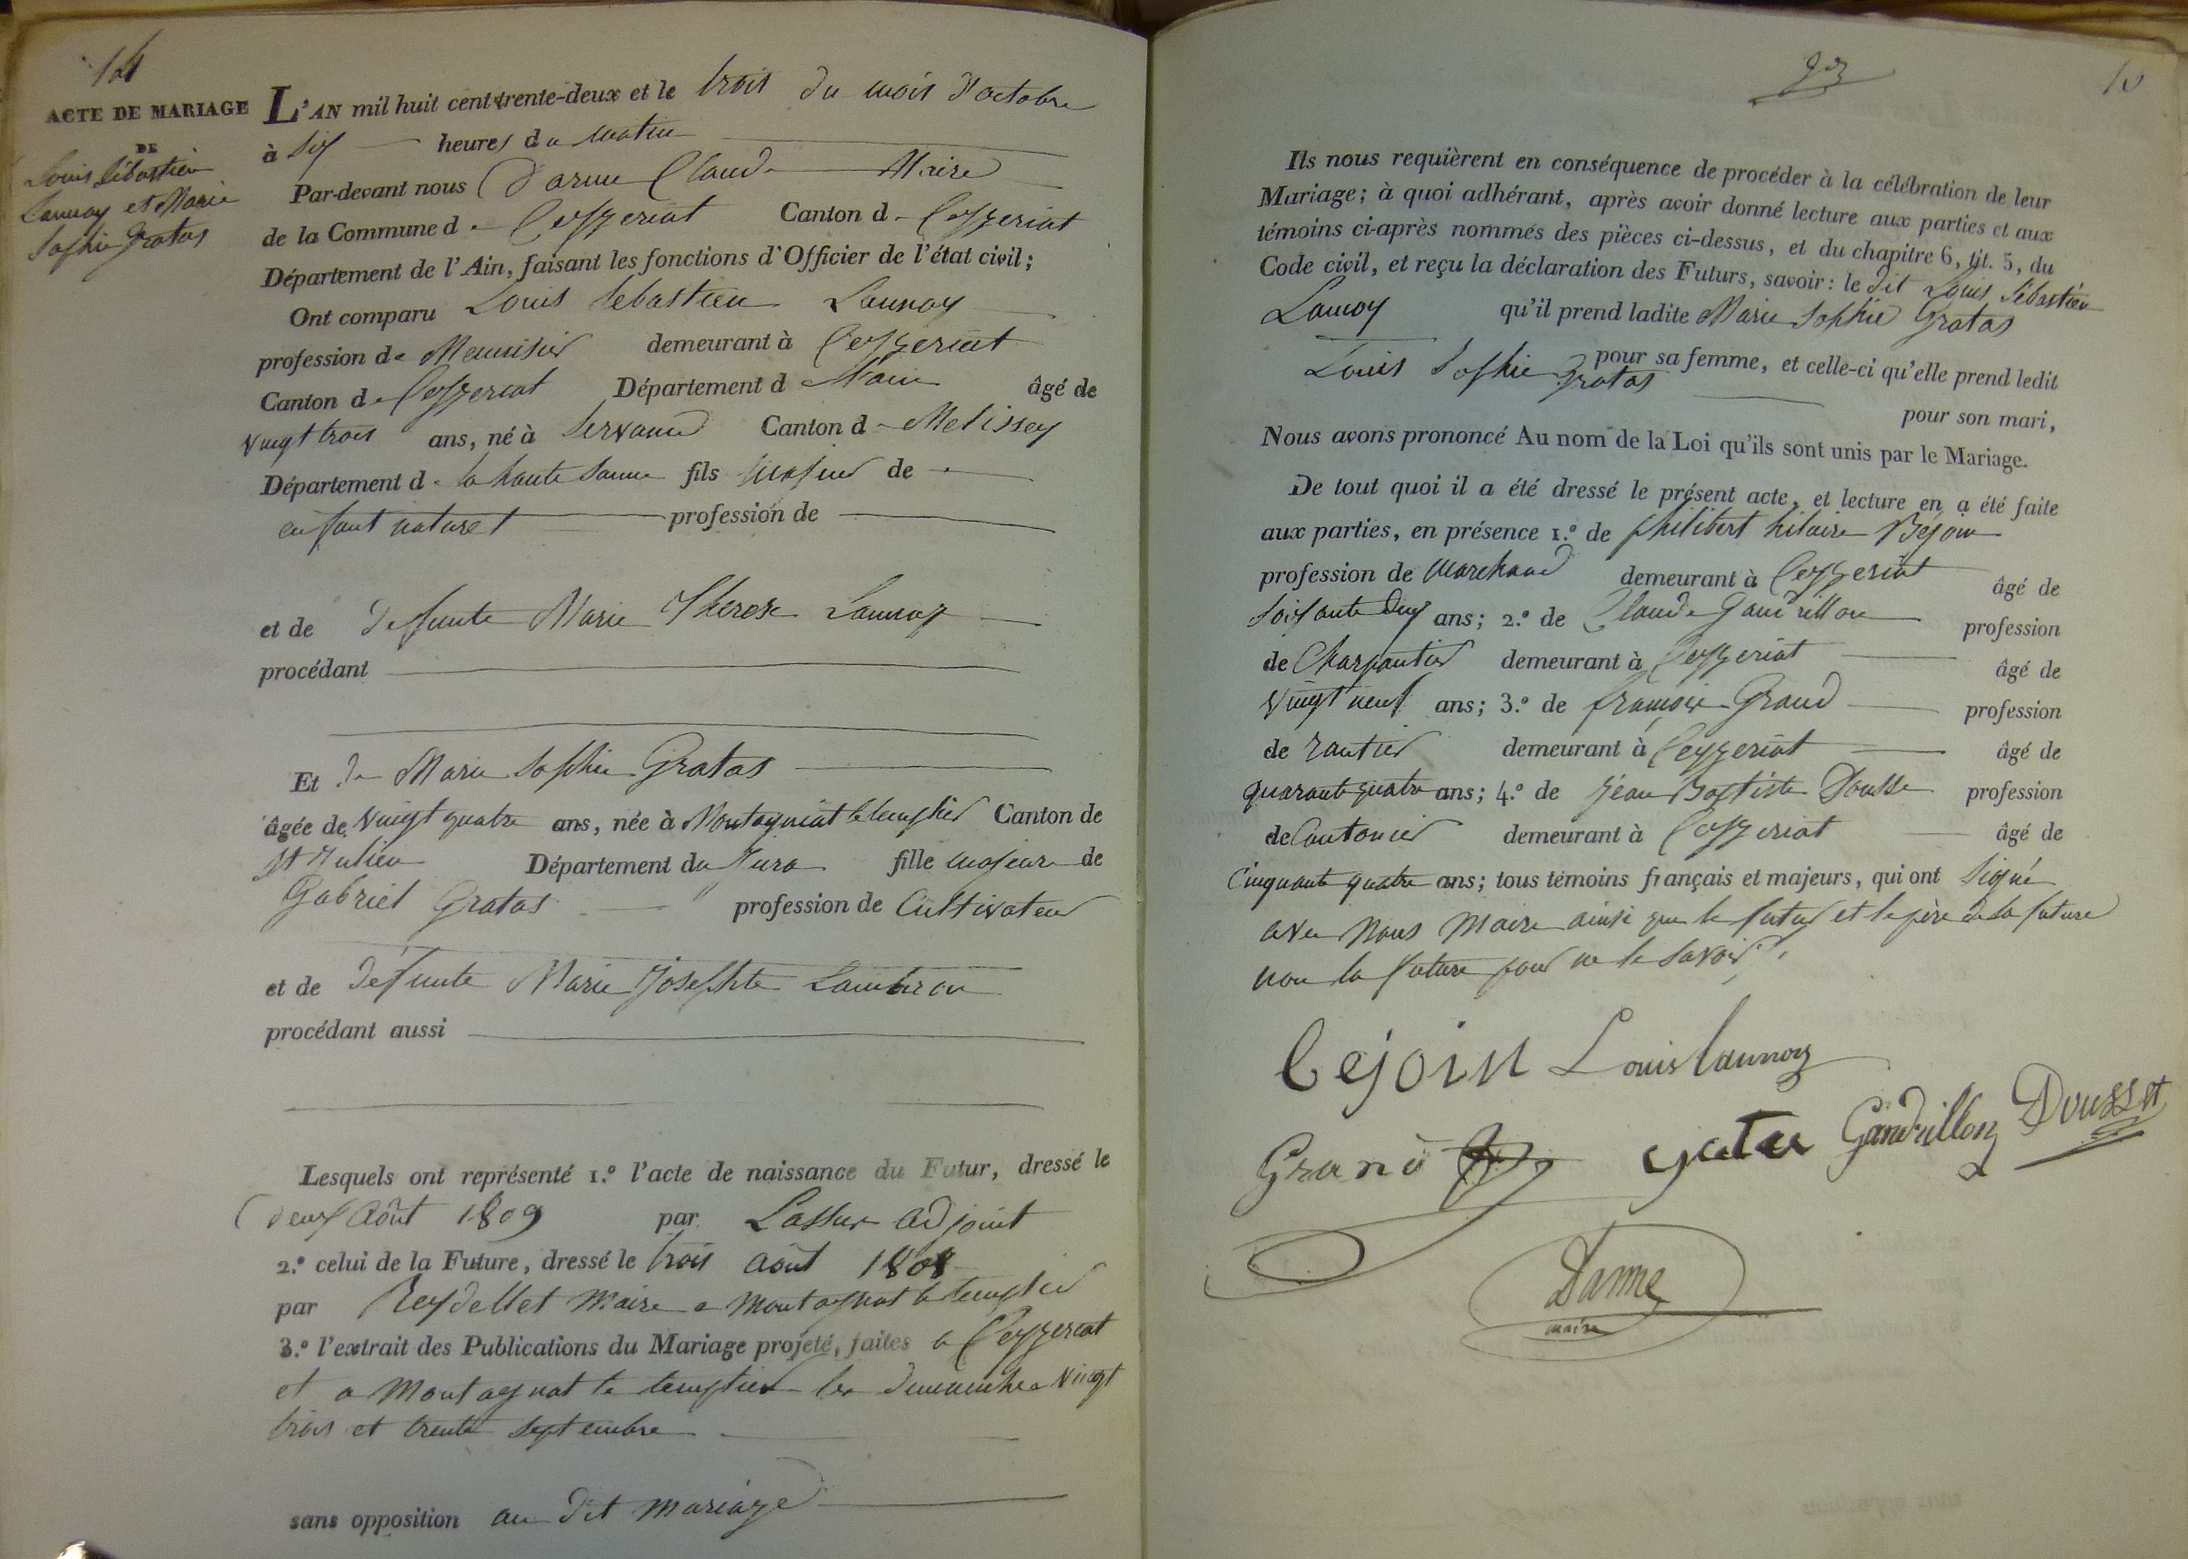 14
ACTE DE MARIAGE
DE
Louis Sébastien
Launoy et Marie
Sophie Gratas
L'AN mil huit cent trente-deux et le trois du mois d'octobre
à six heures du matin
Par-devant nous Darme Claude Maire
de la Commune de Ceyzeriat Canton de Ceyzeriat
Département de l'Ain, faisant les fonctions d'Officier de l'état civil;
Ont comparu Louis Sebastien Launoy
profession de Menuisier demeurant à Ceyzeriat
Canton de Ceyzeriat Département d L'ain âgé de
vingt trois ans, né à Servance Canton de Melissey
Département de la haute Saone fils majeur de
enfant naturel profession de
et de defunte Marie Therese Launoy
procédant
Et de Marie Sophie Gratas
âgée de vingt quatre ans, née à Montagniat le templier Canton de
St Julien Département du Jura fille majeure de
Gabriel Gratas profession de Cultivateur
et de defunte Marie Josephte Lambron
procédant aussi
Lesquels ont représenté 1.º l'acte de naissance du Futur, dressé le
deux Août 1809 par Lassus adjoint
2.º celui de la Future, dressé le trois août 1808
par Reydellet Maire a Montagnat le templier
3.º l'extrait des Publications du Mariage projeté, faites a Ceyzeriat
et a Montagnat le templier les dimanches vingt
trois et trente septembre
sans opposition au dit mariage
10
Ils nous requièrent en conséquence de procéder à la célébration de leur
Mariage; à quoi adhérant, après avoir donné lecture aux parties et aux
témoins ci-après nommés des pièces ci-dessus, et du chapitre 6, tit. 5, du
Code civil, et reçu la déclaration des Futurs, savoir: le dit Louis Sébastien
Launoy qu'il prend ladite Marie Sophie Gratas
pour sa femme, et celle-ci qu'elle prend ledit
Louis Sophie Gratas pour son mari,
Nous avons prononcé Au nom de la Loi qu'ils sont unis par le Mariage.
De tout quoi il a été dressé le présent acte, et lecture en a été faite
aux parties, en présence 1.º de philibert hilaire Béjoin
profession de Marchand demeurant à Ceyzeriat âgé de
soixante deux ans; 2.º de Claude Gandrillon profession
de Charpentier demeurant à Ceyzeriat âgé de
vingt neuf ans; 3.º de françois Grand profession
de rantier demeurant à Ceyzeriat âgé de
quarante quatre ans; 4.º de Jean Baptiste Dousse profession
de Cantonier demeurant à Ceyzeriat âgé de
Cinquante quatre ans; tous témoins français et majeurs, qui ont signé
avec nous Maire ainsi que le futur et le père de la future
non la future pour ne le savoir.
bejoin Louis Launoy
Grand Gandrillon Dousset
Darme
maire